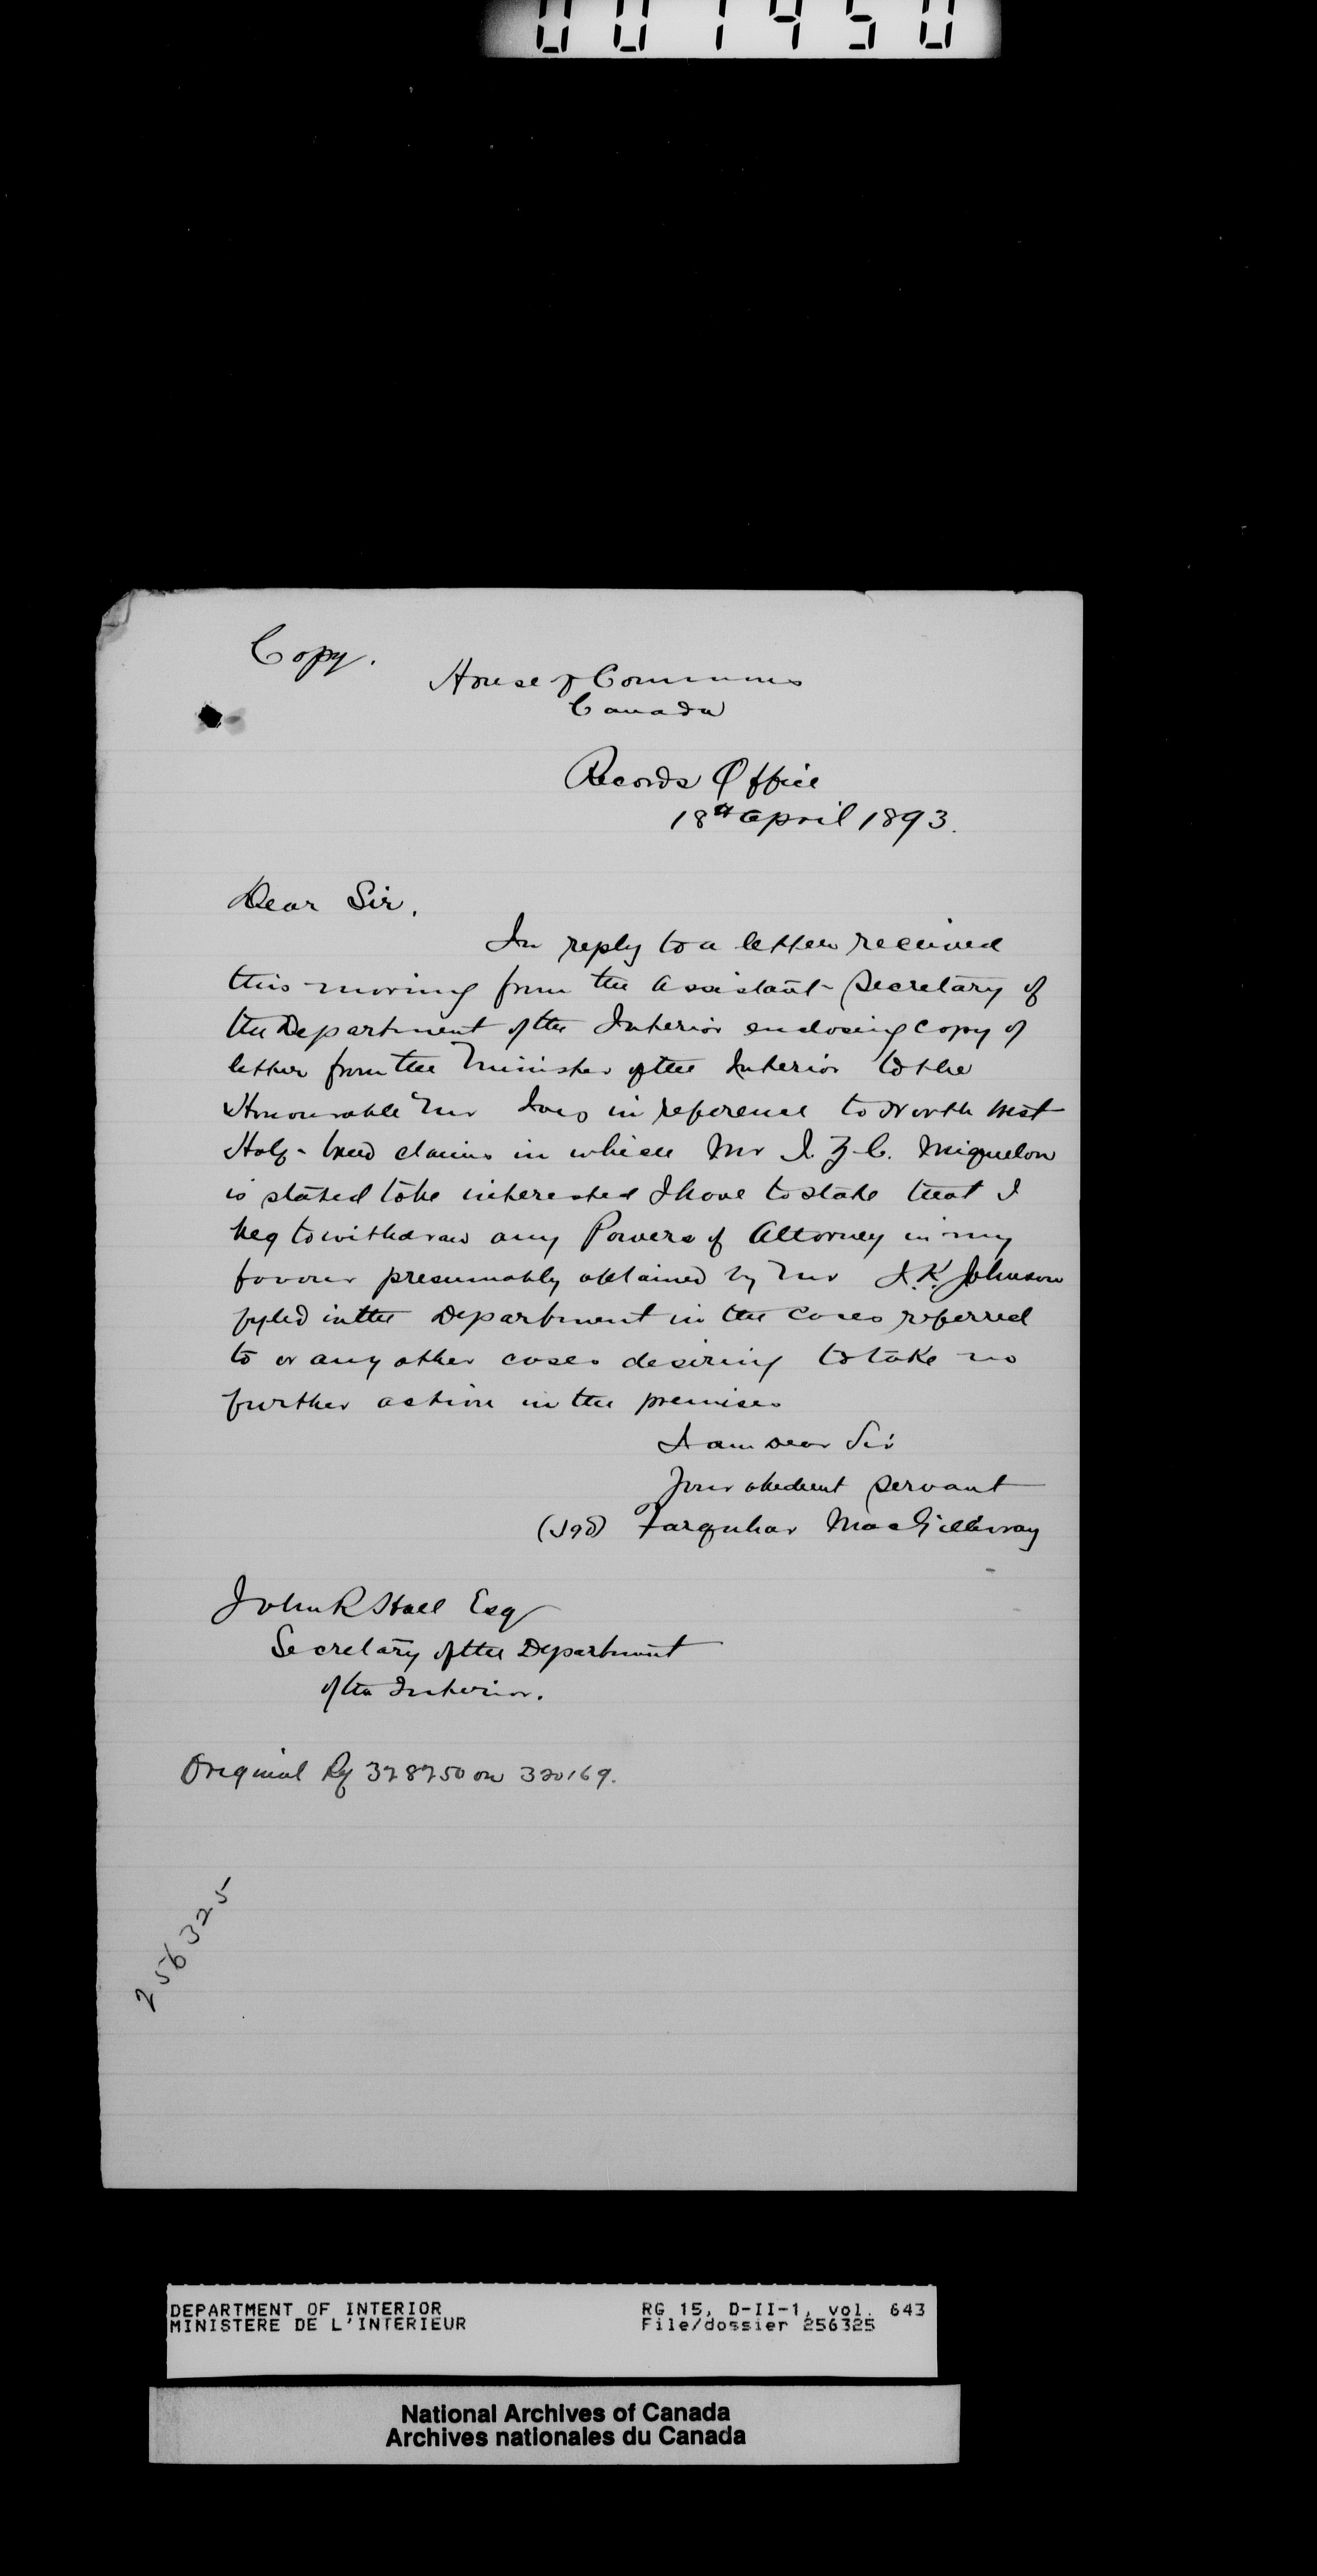 001450
Copy.
House of Commons
Canada
Records Office
18th April 1893.
Dear Sir,
In reply to a letter received
this morning from the Assistant Secretary of
the Department of the Interior enclosing copy of
letter from the Minister of the Interior to the
Honourable Mr Ives in reference to North West
Half-breed claims in which Mr I. Z. C. Miquelon
is stated to be interested I have to state that I
beg to withdraw any Powers of Attorney in my
favour presumably obtained by Mr J. K. Johnson
fyled in the Department in the cases referred
to or any other cases desiring to take no
further action in the premises
I am Dear Sir
Your obedient Servant
(Sgd) Farquhar MacGillivray
John R Hall Esq
Secretary of the Department
of the Interior.
Original Rg 328750 on 320169.
256325
DEPARTMENT OF INTERIOR RG 15, D-II-1, vol. 643
MINISTERE DE L'INTERIEUR File/dossier 256325
National Archives of Canada
Archives nationales du Canada